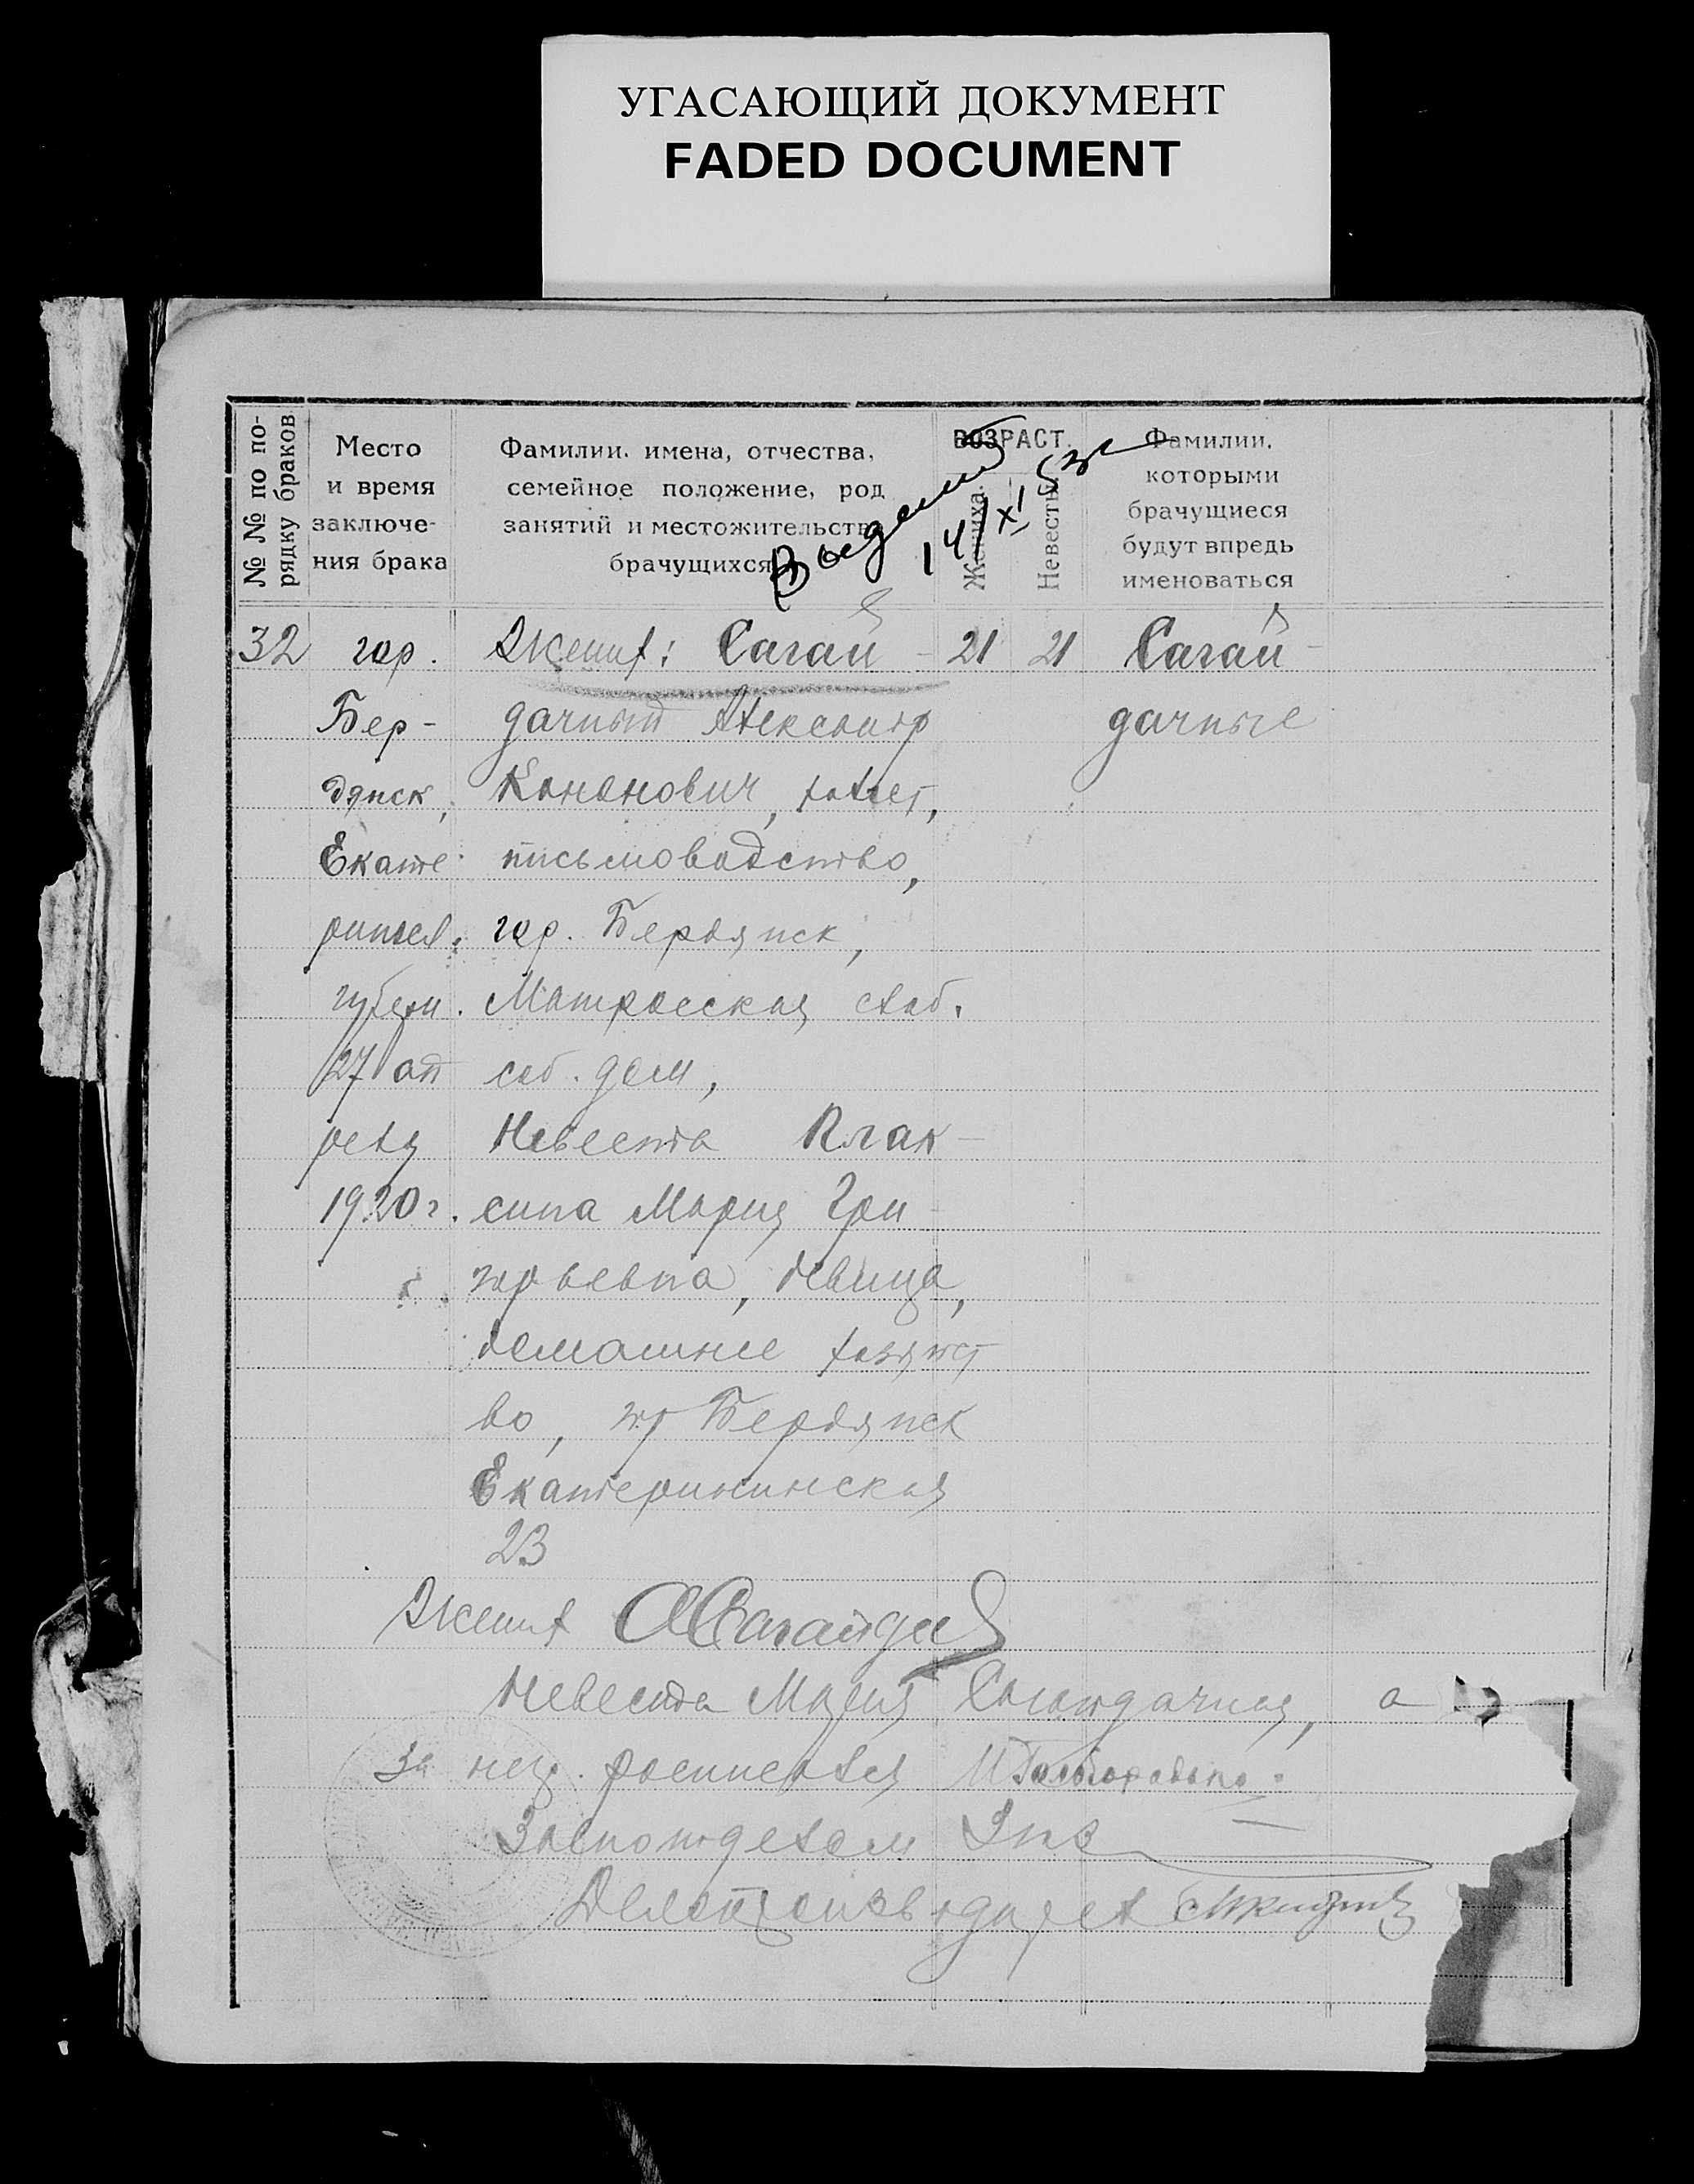 УГАСАЮЩИЙ ДОКУМЕНТ
FADED DOCUMENT
№ № по по-
рядку браков
Место
и время
заключе-
ния брака
Фамилии, имена, отчества,
семейное положение, род
занятий и местожительство
брачущихся
ВОЗРАСТ.
Жениха.
Невесты
Фамилии,
которыми
брачущиеся
будут впредь
именоваться
14/XI 53г
32
гор.
Бер-
дянск,
Екате
губерн.
27 ап
реля
1920 г.
Жених: Сагай-
дачный Александр
Кононович, холост,
письмоводство,
гор. Бердянск,
Матросская слоб.
соб. дом,
Невеста Клак-
сина Мария Гри-
горьевна, девица,
домашнее хозяйст
во, гор Бердянск
Екатерининская
23
21
21
Сагай-
дачные
Жених
Невеста Мария Сагайдачная, а
за нее расписался
Делопроизводител